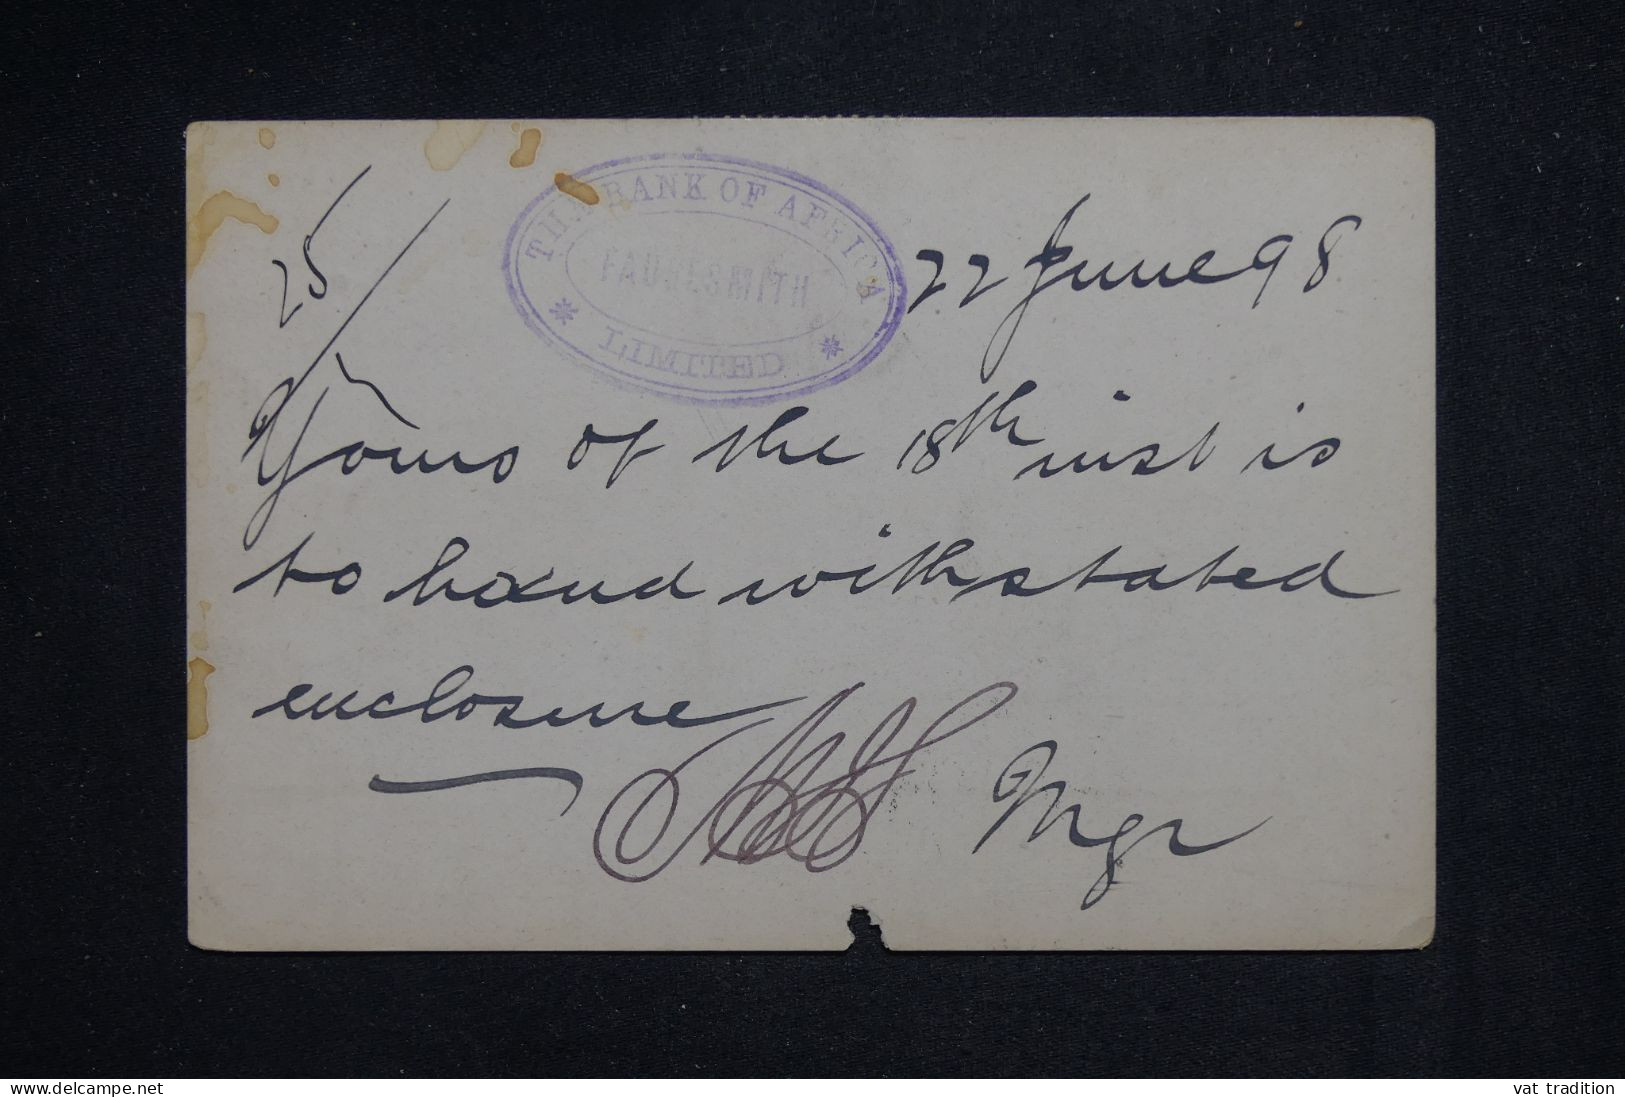 THE BANK OF AFRICA
FAURESMITH
LIMITED
25/
22 June 98
Yours of the 18th inst is
to hand with stated
enclosure
Mgr
www.delcampe.net
vat tradition